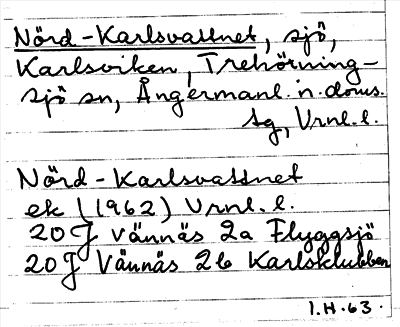 Nörd-Karlsvattnet, sjö,
Karlsviken, Trehörning-
sjö sn, Ångermanl. n. doms.
sg, Vrnl. l.
Nörd-Karlsvattnet
ek (1962) Vrnl. l.
20 J Vännäs 2a Flyggsjö
20 J Vännäs 2b Karlsklubben
I.H.63.